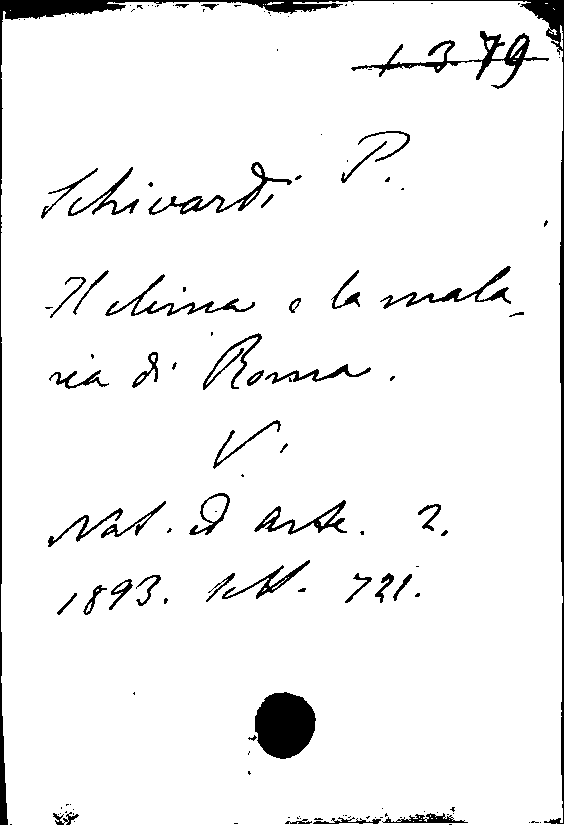 1379
Schivardi P.
Il clima e la mala-
ria di Roma.
V.
Nat. ed arte. 2.
1893. Sett. 721.